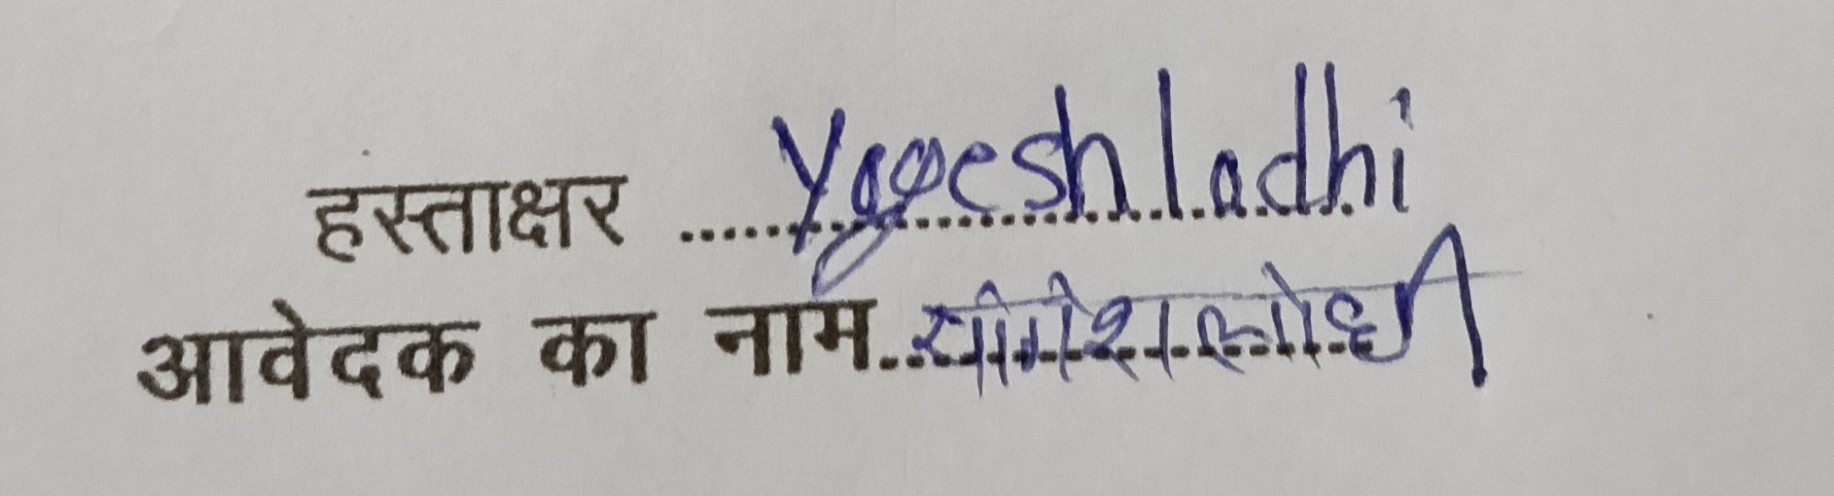 हस्ताक्षर ........ Yogesh lodhi
आवेदक का नाम.. योगेश लोधी